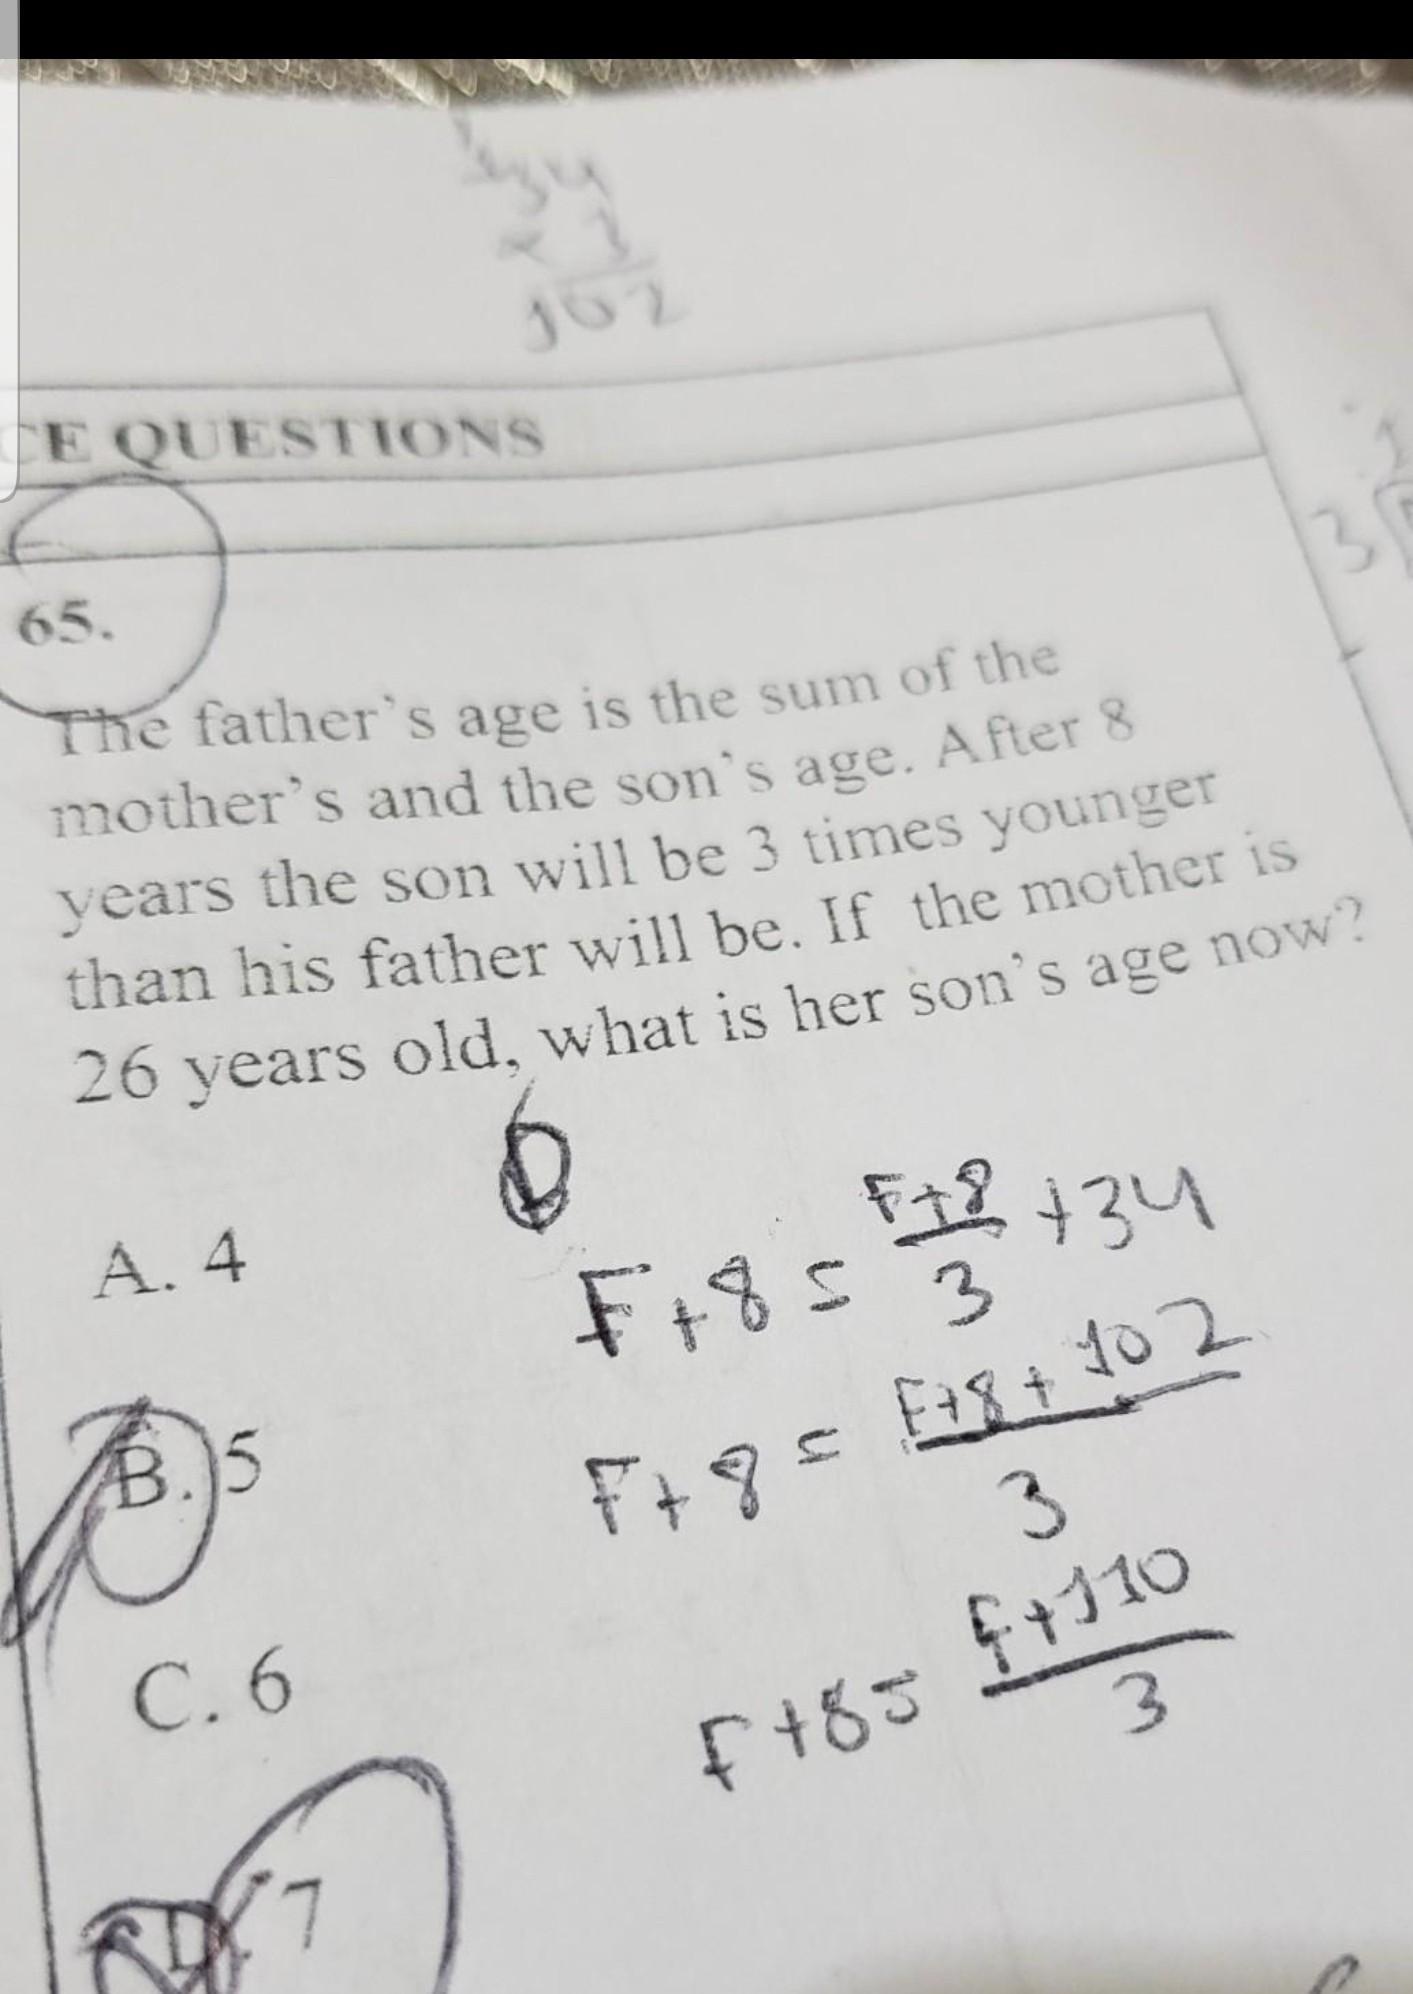 34
× 3
102
CE QUESTIONS
3
65.
The father's age is the sum of the
mother's and the son's age. After 8
years the son will be 3 times younger
than his father will be. If the mother is
26 years old, what is her son's age now?
A. 4
F+8 = F+8/3 +34
B. 5
F+8 = F+8+102/3
C. 6
F+8= F+110/3
D. 7